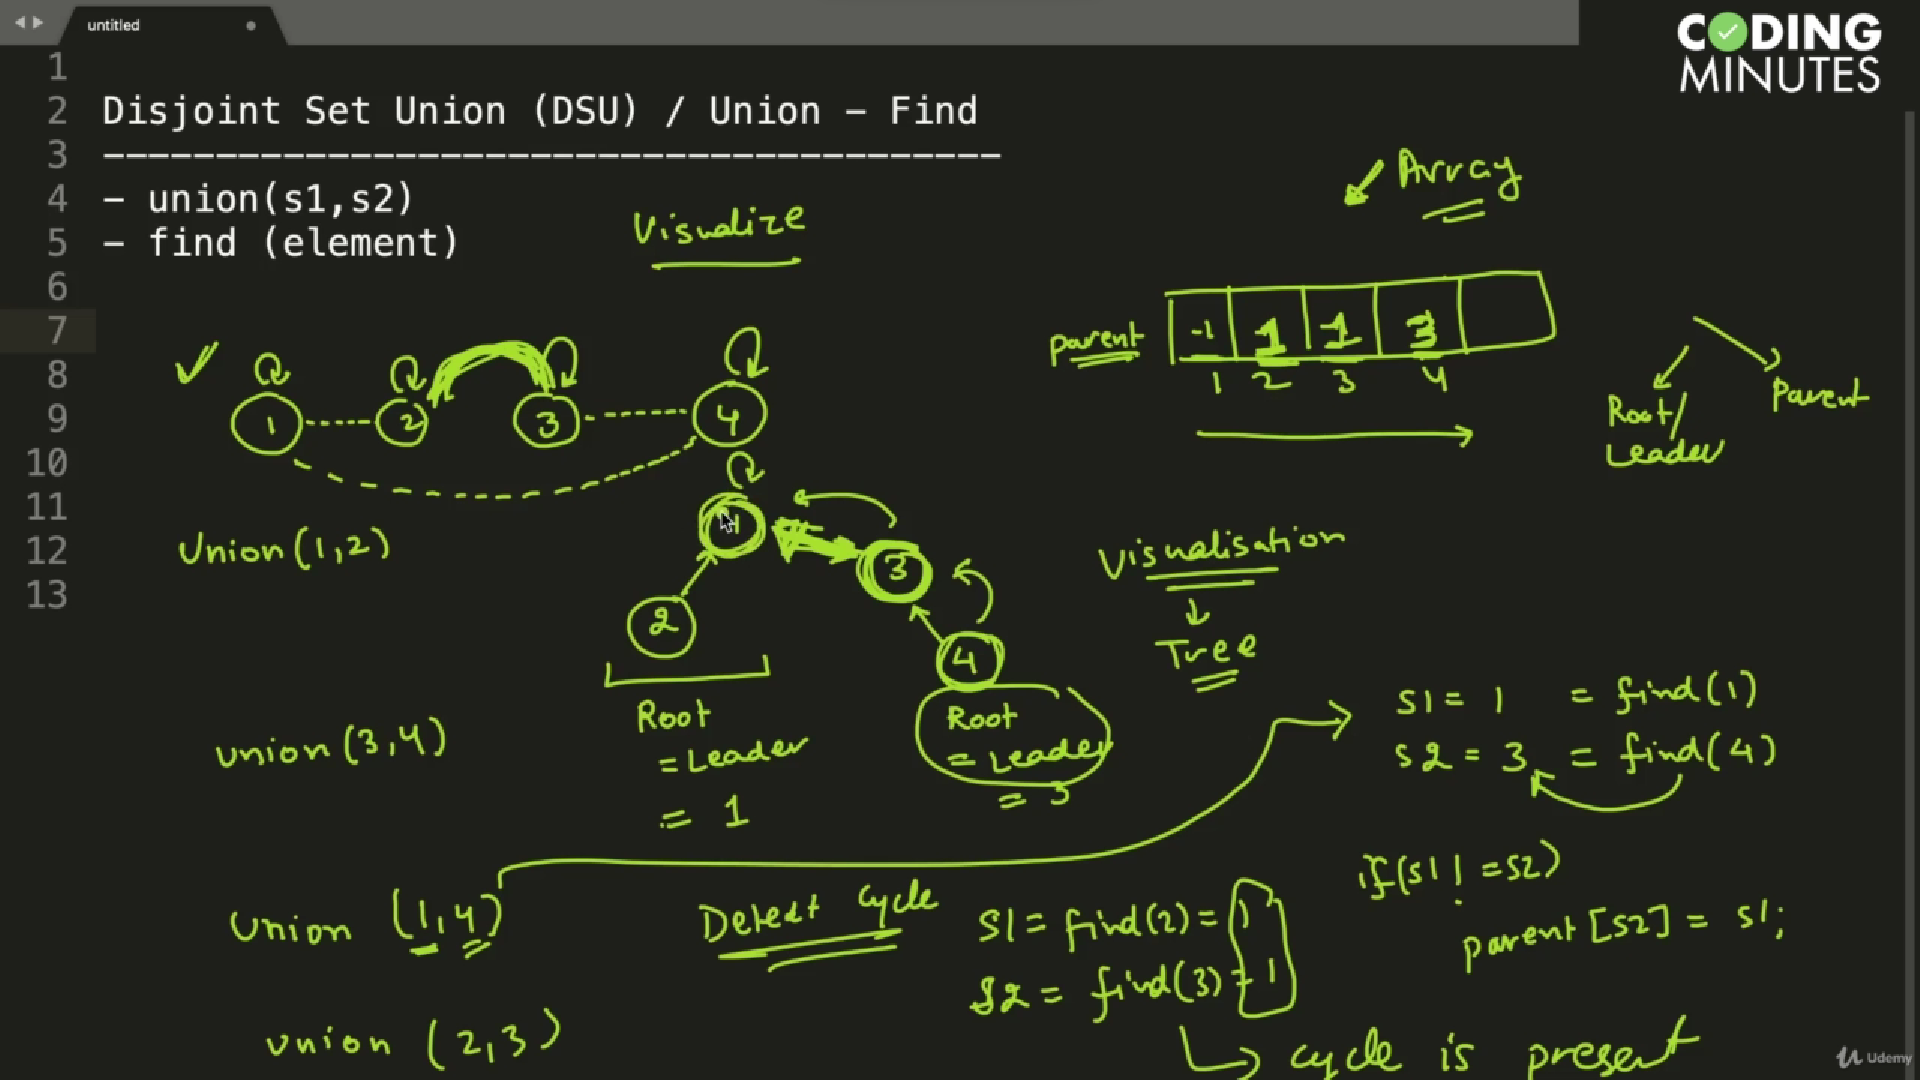 untitled
CODING
MINUTES
1
2 Disjoint Set Union (DSU) / Union - Find
3 ----------------------------------------
4 - union(s1,s2)
5 - find (element)
6
7
8
9
10
11
12
13
Visualize
Array
parent -1 1 1 3
1 2 3 4
Root/
Leader
Parent
1 2 3 4
Union(1,2)
1
3
2
4
Visualisation
Tree
Root
=Leader
= 1
Root
= Leader
= 3
union(3,4)
S1 = 1 = find(1)
S2 = 3 = find(4)
if(s1 != s2)
parent[s2] = s1;
union (1,4)
Detect cycle
S1 = find(2) = 1
S2 = find(3) = 1
union (2,3)
cycle is present
Udemy